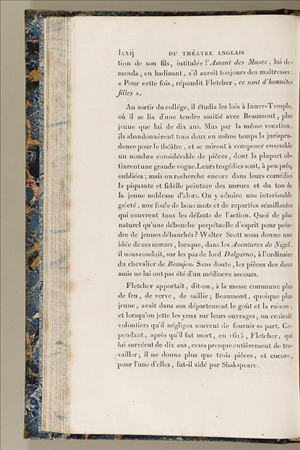 lxxij DU THÉATRE ANGLAIS
tion de son fils, intitulée l'Amant des Muses, lui de-
manda, en badinant, s'il aurait toujours des maîtresses:
« Pour cette fois, répondit Fletcher, ce sont d'honnêtes
filles ».
Au sortir du collége, il étudia les lois à Inner-Temple,
où il se lia d'une tendre amitié avec Beaumont, plus
jeune que lui de dix ans. Mus par la même vocation,
ils abandonnèrent tous deux en même temps la jurispru-
dence pour le théâtre, et se mirent à composer ensemble
un nombre considérable de pièces, dont la plupart ob-
tinrent une grande vogue. Leurs tragédies sont, à peu près,
oubliées; mais on recherche encore dans leurs comédies
la piquante et fidèle peinture des mœurs et du ton de
la jeune noblesse d'alors. On y admire une intarissable
gaieté, une foule de bons mots et de reparties sémillantes
qui couvrent tous les défauts de l'action. Quoi de plus
naturel qu'une débauche perpétuelle d'esprit pour pein-
dre de jeunes débauchés? Walter Scott nous donne une
idée de ces mœurs, lorsque, dans les Aventures de Nigel,
il nous conduit, sur les pas de lord Dalgarno, à l'ordinaire
du chevalier de Beaujeu. Sans doute, les pièces des deux
amis ne lui ont pas été d'un médiocre secours.
Fletcher apportait, dit-on, à la masse commune plus
de feu, de verve, de saillie; Beaumont, quoique plus
jeune, avait dans son département le goût et la raison;
et lorsqu'on jette les yeux sur leurs ouvrages, on croirait
volontiers qu'il négligea souvent de fournir sa part. Ce-
pendant, après qu'il fut mort, en 1615, Fletcher, qui
lui survécut de dix ans, cessa presque entièrement de tra-
vailler; il ne donna plus que trois pièces, et encore,
pour l'une d'elles, fut-il aidé par Shakspeare.